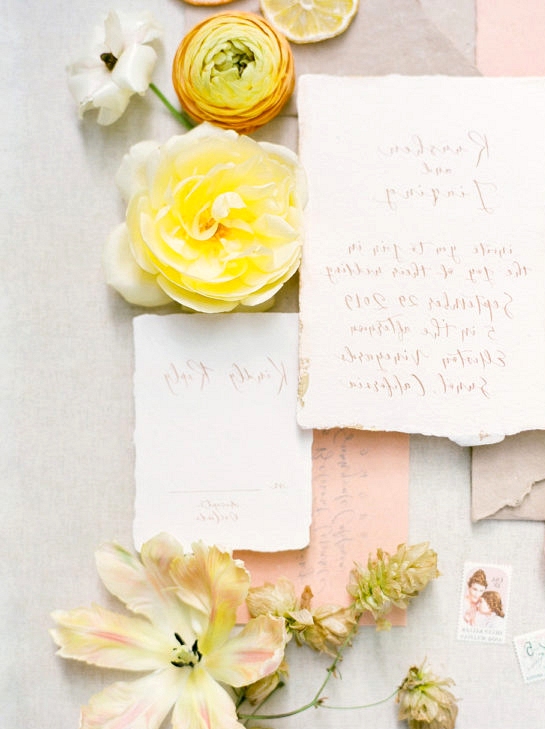 Runshen
and
Jinging
invite you to join in
the joy of their wedding
September 29 2019
5 in the afternoon
Elliston Vineyards
Sunol, California
Kindly Reply
m
accepts
USA
HELEN KELLER
ANNE SULLIVAN
5